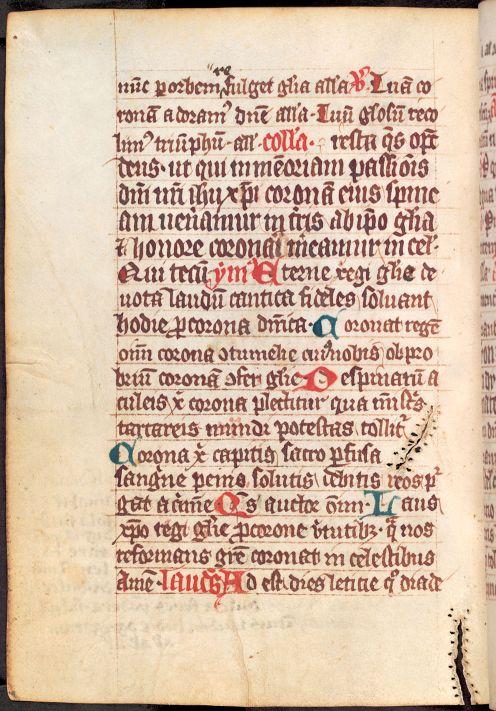 nūc p orbem refulget gl̄ia all̓a V̓. Tuā co
ronā adoram̓ dn̄e all̓a Tuū gl̓osū reco
lim̓ triūphū all̓ coll̓a. Presta q̄s op̄t
deus. ut qui in memoriam passiōis
dn̄i nr̄i ih̄u xp̄i coronā eius spine
am uen̄amur in tr̄is ab ip̄o gl̄ia
⁊ honore coronari m̄eamur in cel̓
Qui tecū ym̓ Eterne regi gl̄ie de
uota laudū cantica fideles soluant
hodie p corona dn̄ica. Coronat regē
om̄i corona ɔtumelie cui̓ nobis obpro
briū coronā ɔfert gl̄ie De spinarū a
culeis x̄ corona plectitur qua mistris
tartareis mundi potestas tollit̓
Corona x̄ capitis sacro pfusa
sangūe penis solutis debitis reos p̓
gat a cīmie Q̄s auctor om̄i. Laus
xp̄o regi gl̄ie p corone v̓tutibꝫ. q̓ nos
reformans gr̄e coronat in celestibus
Amē laud̓ Ad est. dies leticie q̓ diade